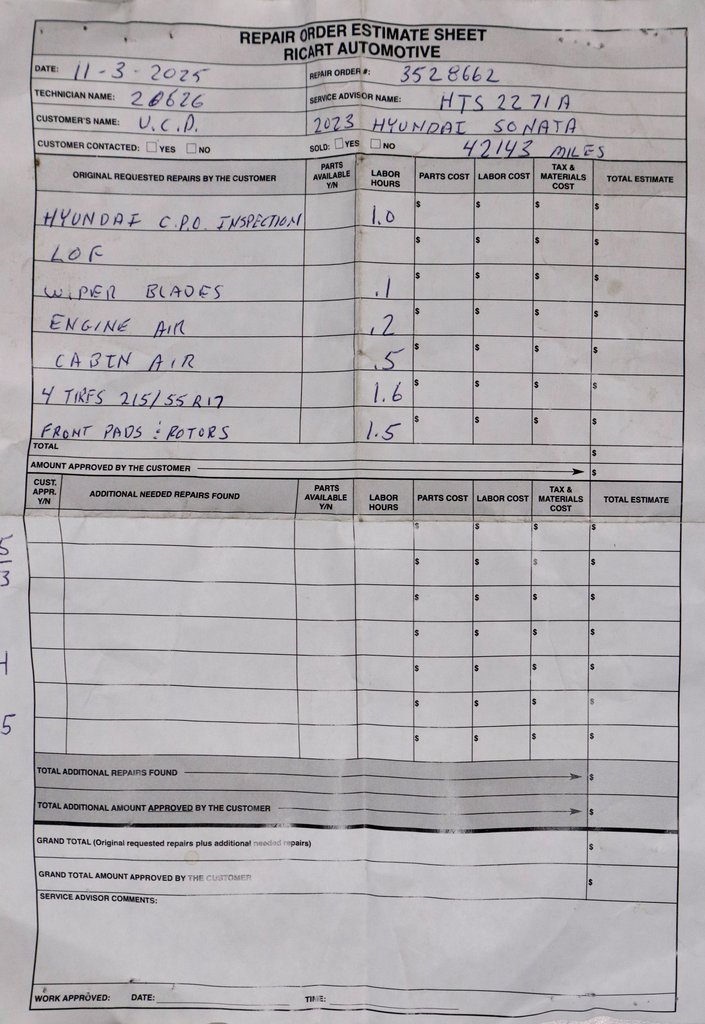 REPAIR ORDER ESTIMATE SHEET
RICART AUTOMOTIVE
DATE: 11-3-2025 REPAIR ORDER #: 3528662
TECHNICIAN NAME: 20626 SERVICE ADVISOR NAME: HTS 2271A
CUSTOMER'S NAME: U.C.D. 2023 HYUNDAI SONATA
CUSTOMER CONTACTED: YES NO SOLD: YES NO 42143 MILES
ORIGINAL REQUESTED REPAIRS BY THE CUSTOMER PARTS AVAILABLE Y/N LABOR HOURS PARTS COST LABOR COST TAX & MATERIALS COST TOTAL ESTIMATE
HYUNDAI C.P.O. INSPECTION 1.0 $ $ $ $
LOF $ $ $ $
WIPER BLADES .1 $ $ $ $
ENGINE AIR .2 $ $ $ $
CABIN AIR .5 $ $ $ $
4 TIRES 215/55R17 1.6 $ $ $ $
FRONT PADS & ROTORS 1.5 $ $ $ $
TOTAL $
AMOUNT APPROVED BY THE CUSTOMER $
CUST. APPR. Y/N ADDITIONAL NEEDED REPAIRS FOUND PARTS AVAILABLE Y/N LABOR HOURS PARTS COST LABOR COST TAX & MATERIALS COST TOTAL ESTIMATE
$ $ $ $
5
$ $ $ $
3
$ $ $ $
$ $ $ $
$ $ $ $
$ $ $ $
5
$ $ $ $
TOTAL ADDITIONAL REPAIRS FOUND $
TOTAL ADDITIONAL AMOUNT APPROVED BY THE CUSTOMER $
GRAND TOTAL (Original requested repairs plus additional needed repairs) $
GRAND TOTAL AMOUNT APPROVED BY THE CUSTOMER $
SERVICE ADVISOR COMMENTS:
WORK APPROVED: DATE: TIME: